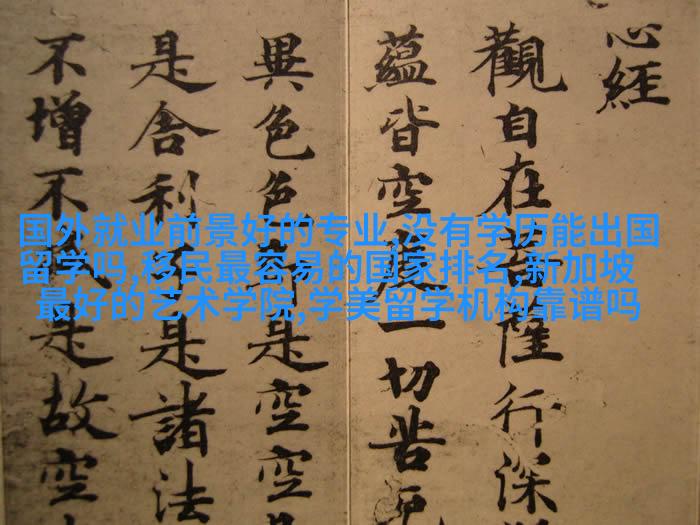 心經
觀自在菩薩行深
蘊皆空度一切苦厄
異色色即是空空
是舍利子是諸法
不增不減是故空
国外就业前景好的专业,没有学历能出国
留学吗,移民最容易的国家排名,新加坡
最好的艺术学院,学美留学机构靠谱吗